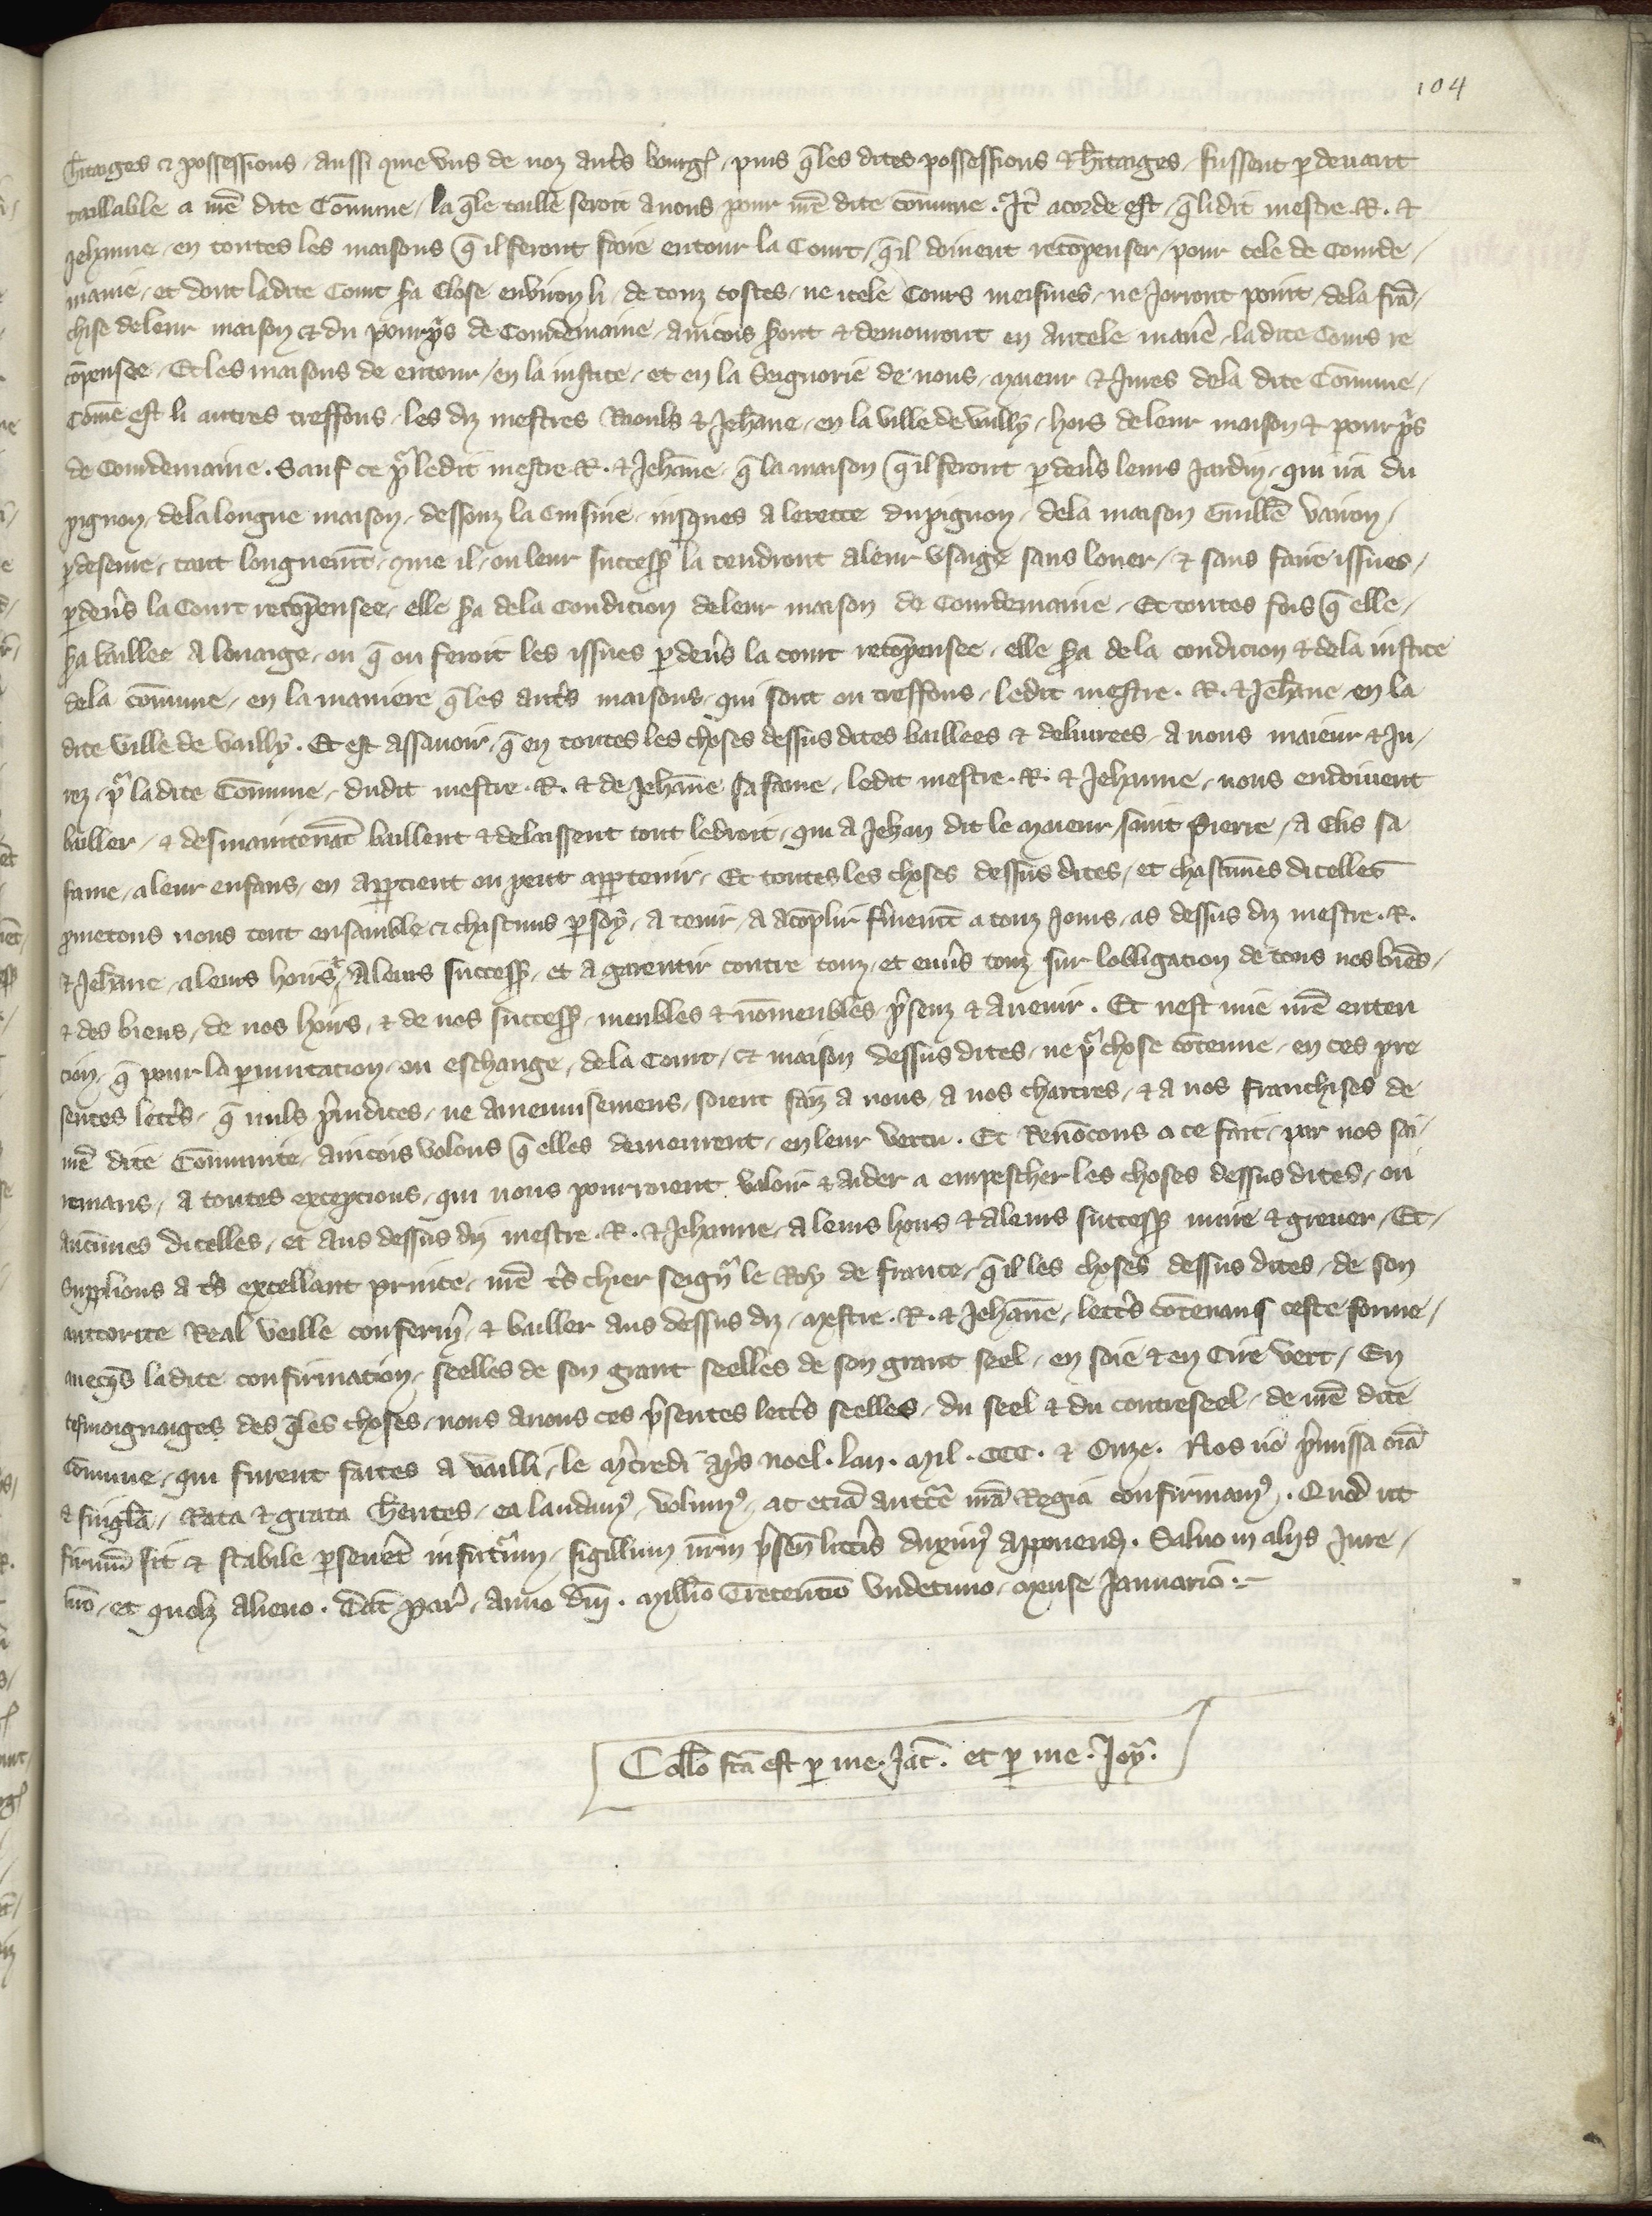 104
h̄itaiges et possessions / aussi que vns de noz autͥs bourgͥ / puis q̄ les dites possessions & h̄itaiges / fussent p̱ deuant
taillable a nr̄e dite Cōmune / la q̄le taille seroit a nous pour nr̄e dite cōmune . It̄ acorde est / q̄ li dit mestre . R . &
Jehanne / en toutes les maisons q̄ il feront faire entour la Court / q̄il doiuent recōpenser / pour cele de Comde /
maine / et dont la dite Court s̄a Close enuiron li / de touz costes / ne icele Cours meismes / ne Jorront point / de la frā /
chise de leur maison & du pourp̄s de Comdemaine / aincois s̄ont & demorront en autele manīe / la dite Cours re
cōpensee / Et les maisons de entour / en la iustice / et en la Seignorie de nous / maieur & Jures de la dite Cōmune /
Cōme est li autres treffons / les diz mestres Raouls & Jeh̄ane / en la ville de vailly / hors de leur maison & pourp̄s
de Comdemaine . Sauf ce pͬ ledit mestre . R . & Jeh̄ane / q̄ la maison q̄ il feront p̱ deūs leurs Jardin / qui va du
pignon / de la longue maison / dessouz la Cuisine / iusques a lerette du pignon / de la maison Guill̄e vairon /
p̱ deseure / tant longuem̄t / que il / ou leur success̄ la tendront a leur vsaige sans louer / & sans faire issues /
p̱ deūs la Court recōpensee / elle s̄a de la Condicion de leur maison de Comdemaine / Et toutes fois q̄ elle /
s̄a baillee a louaige / ou q̄ on feroit les issues p̱ deūs la court recōpensee / elle s̄a de la condicion & de la iustice
de la cōmune / en la maniere q̄ les autͥs maisons / qui sont ou treffons / ledit mestre . R . & Jeh̄ane / en la
dite ville de vailly . Et est assauoir / q̄ en toutes les choses dessus dites baillees & deliurees / a nous maieur & Ju /
rez / pͬ la dite Cōmune / dudit mestre . R . & de Jeh̄ane sa fame / ledit mestre . R . & Jehanne / nous en doiuent
bailler / & des maintenāt baillent & delaissent tout le droit / qui a Jehan dit le maieur / saint Pierre / a Elis sa
fame / a leur enfans / en app̱tient ou peut app̱tenir / Et toutes les choses dessus dites / et chascunes dicelles
p̄metons nous tout ensamble & chascuns p̱ soy / a tenir / a acōplir f̄mem̄t a touz Jours / as dessus diz mestre . R .
& Jeh̄ane / a leurs hoirs & a leurs success̄ / et a garentir contre touz / et enūs touz sur lobligation de tous nos biēs /
& des biens / de nos hoirs / & de nos success̄ / meubles & nōmeubles / p̄senz & auenir . Et nest mie nr̄e enten
cion / q̄ pour la p̱mutacion / ou eschange / de la Court / & maison dessus dites / ne pͬ chose cōtenue / en ces pre
sentes lettͥs / q̄ nuls p̄iudices / ne amenuisemens / soient faiz a nous / a nos chartres / & a nos franchises de
nr̄e dite Cōmunite / aincois volons q̄ elles demeurent / en leur vertu . Et Renōcons a ce fait / par nos sai /
remans / a toutes exceptions / qui nous pourroient valoir & aider a empescher les choses dessus dites / ou
aucunes dicelles / et aus dessus diz mestre . R . & Jehanne / a leurs hoirs & a leurs success̄ nuire & greuer / Et /
Supplions a tͥs excellant prince / nr̄e tͥs chier seignͬ le Roy de france / q̄ il les choses dessus dites / de son
auctorite Real veille confermͬ / & bailler aus dessus diz / mestre . R . & Jeh̄ane / lettͥs cōtenans ceste forme /
auecq̄s la dite confirmation / seelles de son grant seelles de son grant seel / en soie & en Cire vert / En
tesmoignaiges des q̄les choses / nous auons ces p̄sentes lettͥs seelles / du seel & du contreseel / de nr̄e dite
Cōmune / qui furent faites a vailli / le m̄credi ap̄s noel . lan . Mil . CCC . & Onze . Nos u̇o p̄missa om̄ia
& singl̄a / Rata & grata h̄entes / ea laudamꝰ / volumꝰ / ac eciā auctͨe nr̄a Regia confirmamꝰ . Quod ut
firmū sit & stabile p̱seueͬt infutͬum / sigillum nr̄m p̄sen̄ litt̄is duximꝰ apponend̄ . Saluo in aliis Jure /
nr̄o / et quolz alieno . Dat̄ parͥ / anno dn̄i . Mill̄io Trecen̄tio vndecimo / mense Januario . ~
Coll̄o fc̄a est p̱ me . Jac̄ . et p̱ me . Joy̆ .